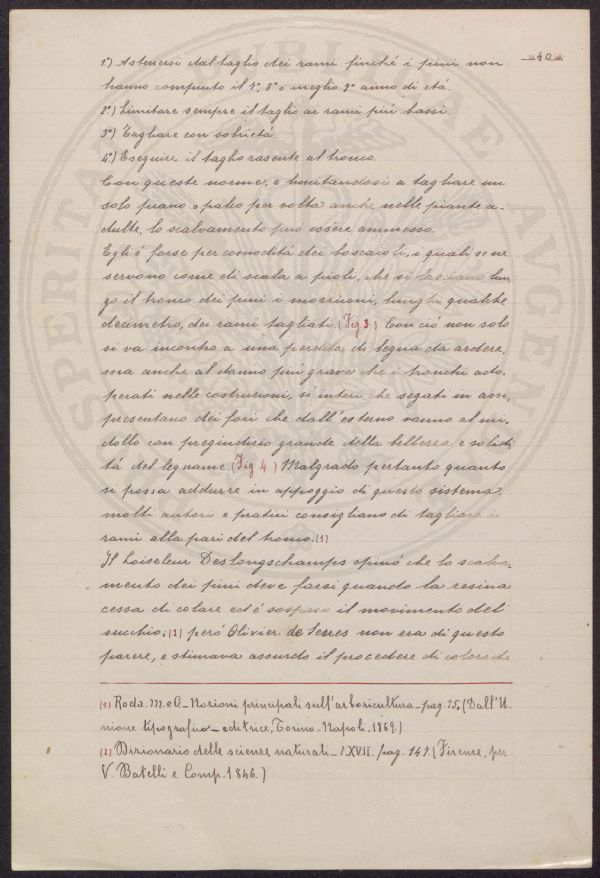 „40„
1º) Astenersi dal taglio dei rami finché i pini non
hanno compiuto il 7º, 8º o meglio 9º anno di etá.
2º) Limitare sempre il taglio ai rami piú bassi.
3º) Tagliare con sobrietá.
4º) Eseguire il taglio rasente al tronco.
Con queste norme, e limitandosi a tagliare un
solo piano o palco per volta anche nelle piante a-
dulte, lo scalvamento puó essere ammesso.
Egli é forse per comoditá dei boscaioli, i quali se ne
servono come di scala a pioli, che si lasciano lun
go il tronco dei pini i morziconi, lunghi qualche
decimetro, dei rami tagliati. (Fig 3) Con ció non solo
si va incontro a una perdita di legna da ardere,
ma anche al danno piú grave che i tronchi ado-
perati nelle costruzioni, si interi che segati in assi,
presentano dei fori che dall'esterno vanno al mi-
dollo con pregiudizio grande della bellezza e solidi
tá del legname. (Fig 4) Malgrado pertanto quanto
si possa addurre in appoggio di questo sistema,
molti autori e pratici consigliano di tagliare i
rami alla pari del tronco. (1)
Il Loiseleur Deslongschamps opinó che lo scalva-
mento dei pini deve farsi quando la resina
cessa di colare ed é sospeso il movimento del
succhio; (2) peró Olivier de Serres non era di questo
parere, e stimava assurdo il procedere di coloro che
(1) Roda. M. e G. - Nozioni principali sull'arboricultura - pag. 25. (Dall'U.
nione tipografico - editrice, Torino - Napoli. 1869.)
(2) Dizionario delle scienze naturali - XVII. pag. 149. (Firenze, per
V. Batelli e Comp. 1846.)
SPERITAT PUBLICAE AUGEN